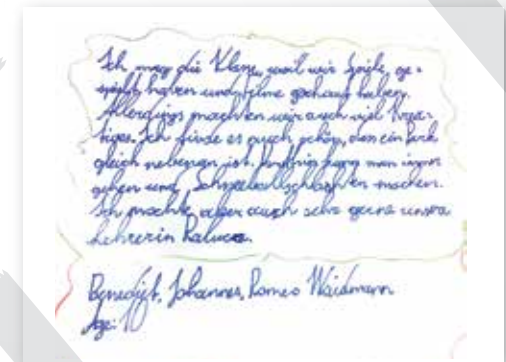 Ich mag die Klasse, weil wir Spiele ge-
spielt haben und Filme geschaut haben.
Allerdings machten wir auch viel Krea-
tives. Ich finde es auch schön, das ein Park
gleich nebenan ist. Dorthin kann man immer
gehen und Schneeballschlachten machen.
Ich mochte aber auch sehr gerne unsra
Lehrerin Raluca.
Benedikt, Johannes, Romeo Waidmann
Age: 10